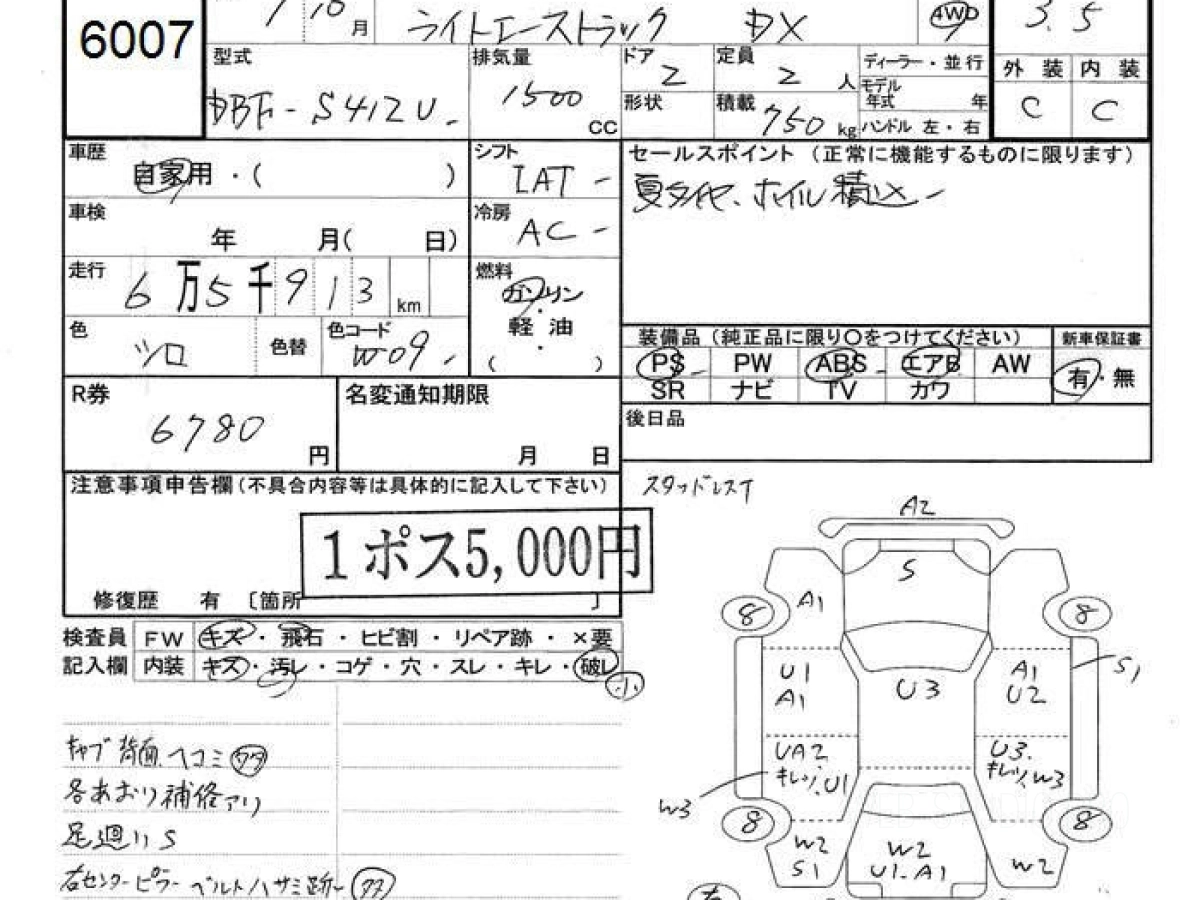 6007
月
ライトエーストラック DX 4WD
3.5
型式
DBF-S412U
排気量
1500
CC
ドア
2
定員
2 人
ディーラー・並行
モデル
年式 年
ハンドル 左・右
形状
積載
750 kg
外装 内装
C C
車歴
自家用・( )
シフト
IAT
セールスポイント (正常に機能するものに限ります)
夏タイヤ、ホイル積込
車検
年 月( 日)
冷房
AC
走行
6万5千913 km
燃料
ガソリン
・
軽油
・
( )
色
シロ
色替
色コード
W09
装備品 (純正品に限り〇をつけてください)
新車保証書
PS PW ABS エアB AW
SR ナビ TV カワ
有・無
R券
6780
円
名変通知期限
月 日
後日品
注意事項申告欄(不具合内容等は具体的に記入して下さい)
1ポス5,000円
修復歴 有 〔箇所 〕
スタッドレスT
検査員 FW キズ・飛石・ヒビ割・リペア跡・×要
記入欄 内装 キズ・汚レ・コゲ・穴・スレ・キレ・破レ
小
キャブ背面ヘコミワタ
各あおり補修アリ
足廻りS
右センターピラーベルトハサミ跡
A2
S
A1
8
8
U1
A1
U3
A1
U2
S1
UA2
キレツ,U1
W3
U3.
キレツ,W3
8
8
W2
S1
W2
U1.A1
W2
右